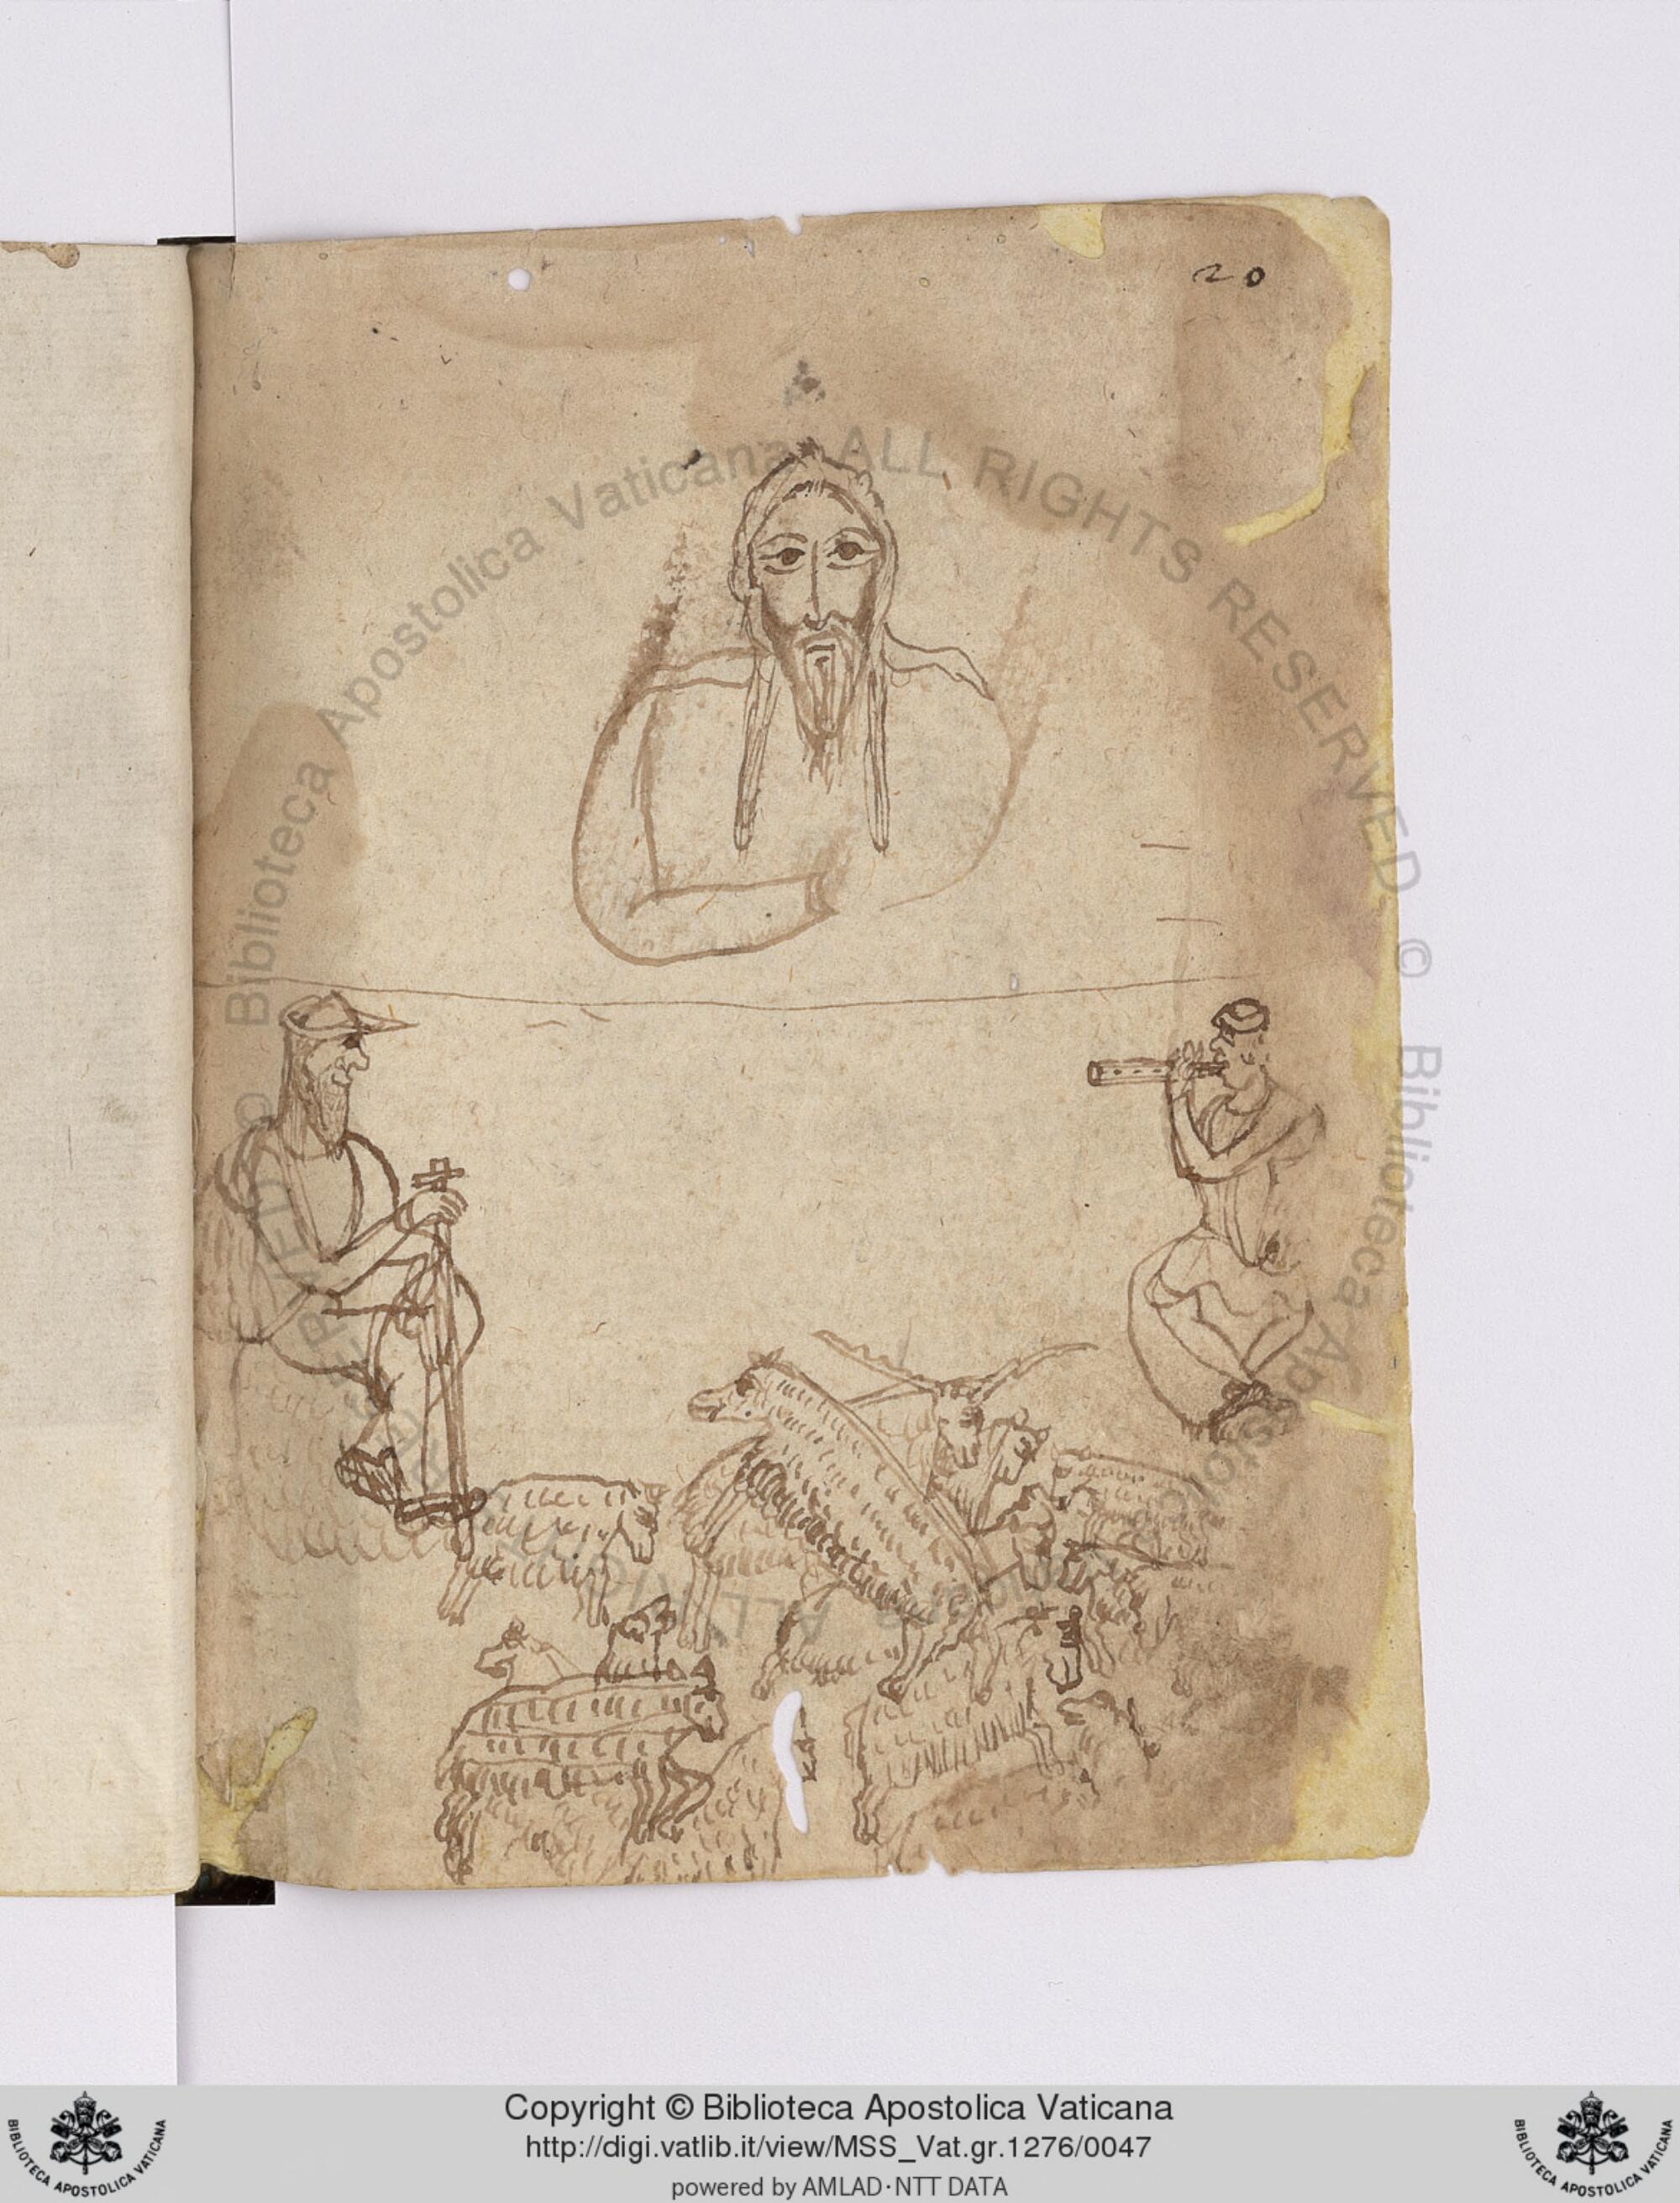 20
© Biblioteca Apostolica Vaticana ALL RIGHTS RESERVED © Biblioteca Apostolica
Copyright © Biblioteca Apostolica Vaticana
http://digi.vatlib.it/view/MSS_Vat.gr.1276/0047
powered by AMLAD·NTT DATA
BIBLIOTECA APOSTOLICA VATICANA
BIBLIOTECA APOSTOLICA VATICANA